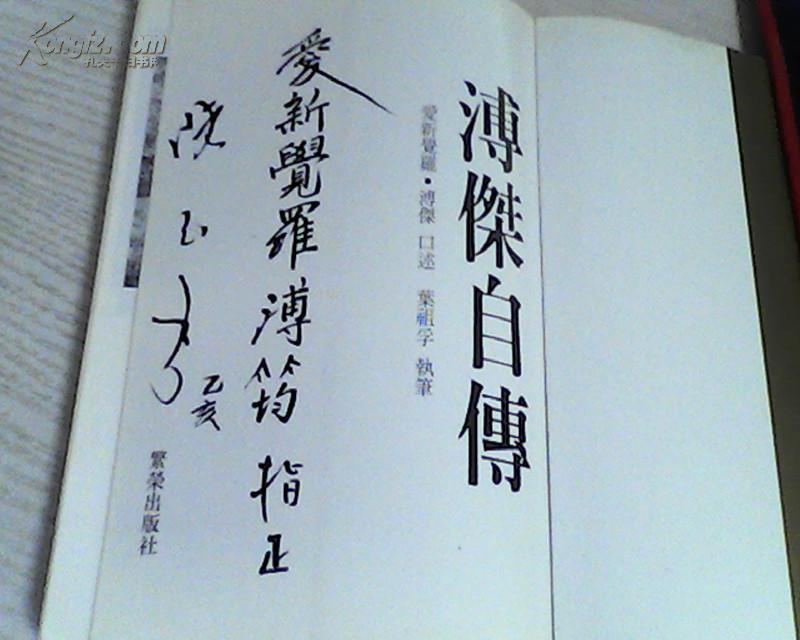 溥傑自傳
愛新覺羅・溥傑 口述 葉祖孚 執筆
愛新覺羅溥筠 指正
乙亥
繁榮出版社
Kongfz.com
孔夫子旧书网